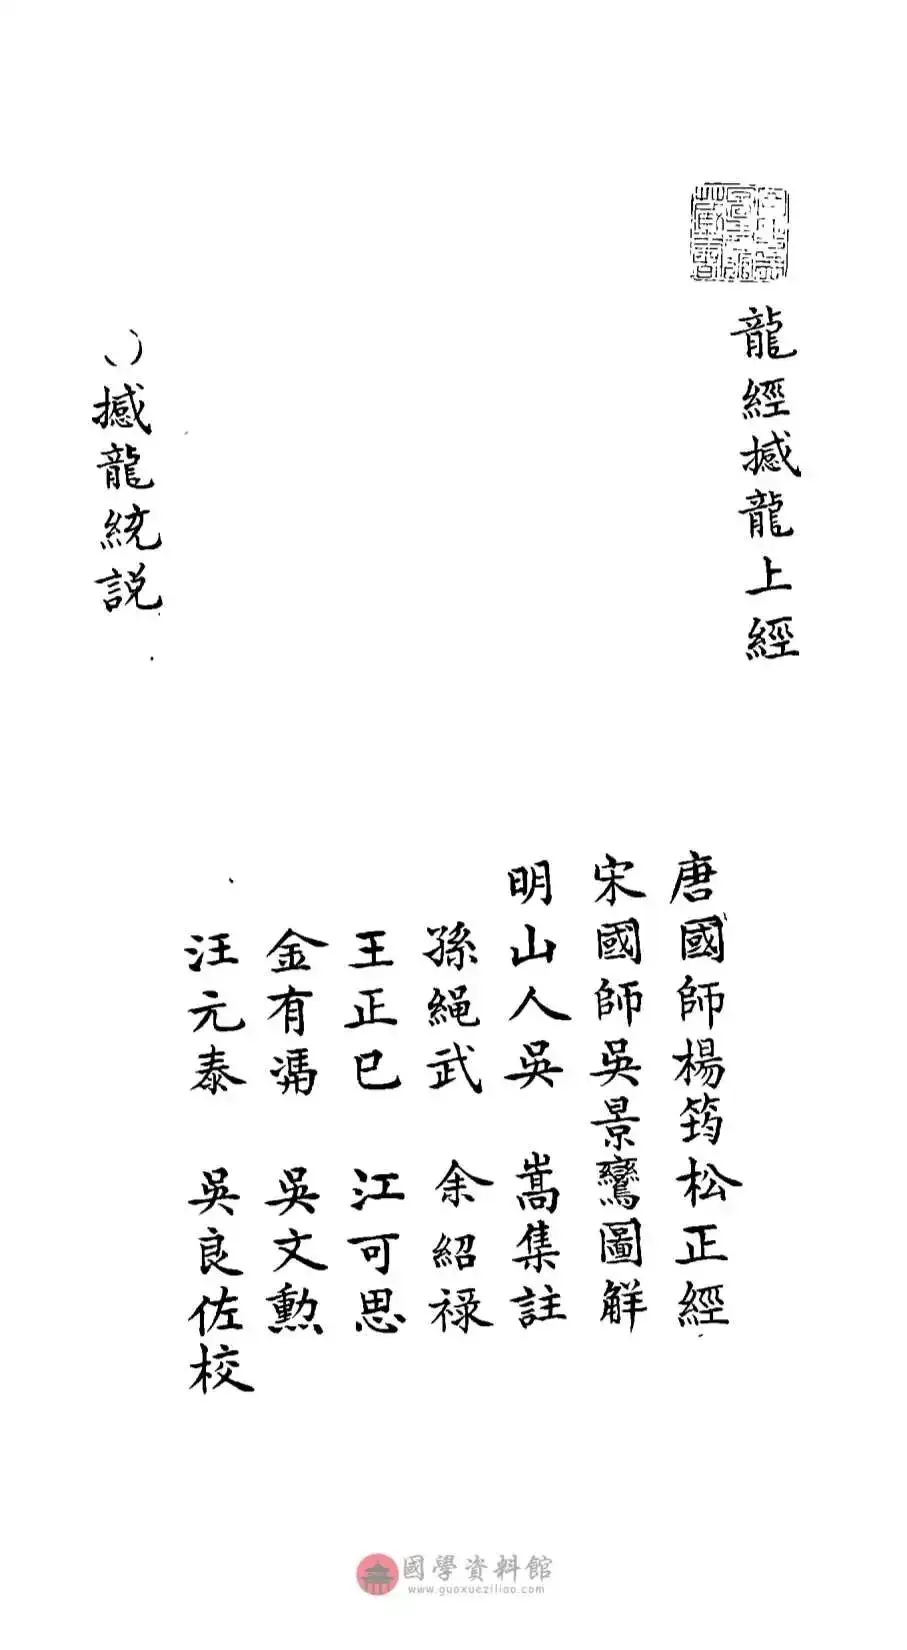 龍經撼龍上經
唐國師楊筠松正經
宋國師吳景鸞圖解
明山人吳 嵩集註
孫繩武 余紹祿
王正已 江可思
金有 吳文勲
汪元泰 吳良佐校
撼龍統説
國學資料館
www.guoxueziliao.com